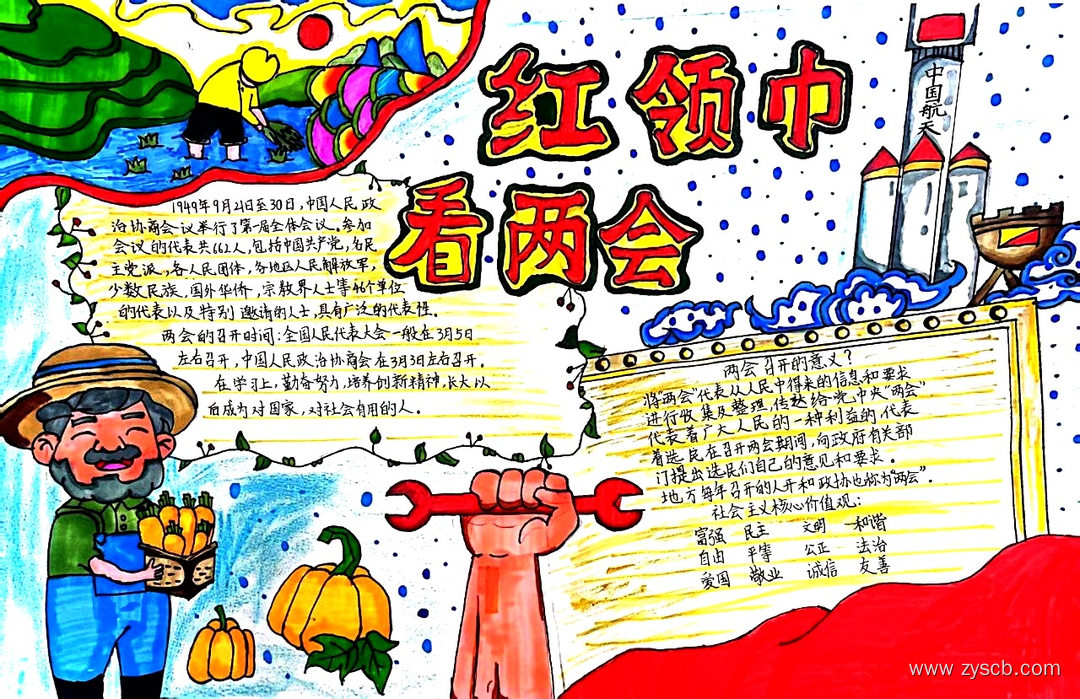 红领巾
看两会
中国航天
1949年9月21日至30日,中国人民政
治协商会议举行了第一届全体会议。参加
会议的代表共662人,包括中国共产党,各民
主党派,各人民团体,各地区人民解放军,
少数民族、国外华侨,宗教界人士等46个单位
的代表以及特别邀请的人士,具有广泛的代表性。
两会的召开时间:全国人民代表大会一般在3月5日
左右召开,中国人民政治协商会在3月3日左右召开。
在学习上,勤奋努力,培养创新精神,长大以
后成为对国家,对社会有用的人。
两会召开的意义?
将两会"代表从人民中得来的信息和要求
进行收集及整理,传达给党中央"两会"
代表着广大人民的一种利益的代表
着选民在召开两会期间,向政府有关部
门提出选民们自己的意见和要求。
地方每年召开的人开和政协也称为"两会"。
社会主义核心价值观:
富强 民主 文明 和谐
自由 平等 公正 法治
爱国 敬业 诚信 友善
www.zyscb.com